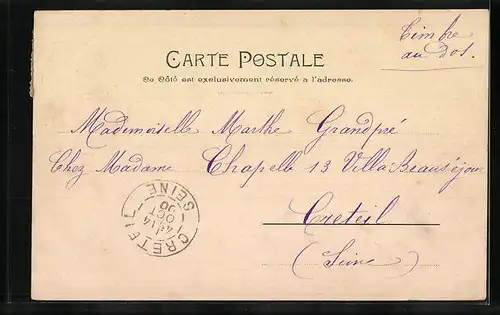 Timbre
au dos.
CARTE POSTALE
Ce Côté est exclusivement réservé a l'adresse.
Mademoiselle Marthe Grandpré
Chez Madame Chapelle 13 Villa Beauséjour
Creteil
(Seine)
CRETEIL
14
OCT
00
SEINE